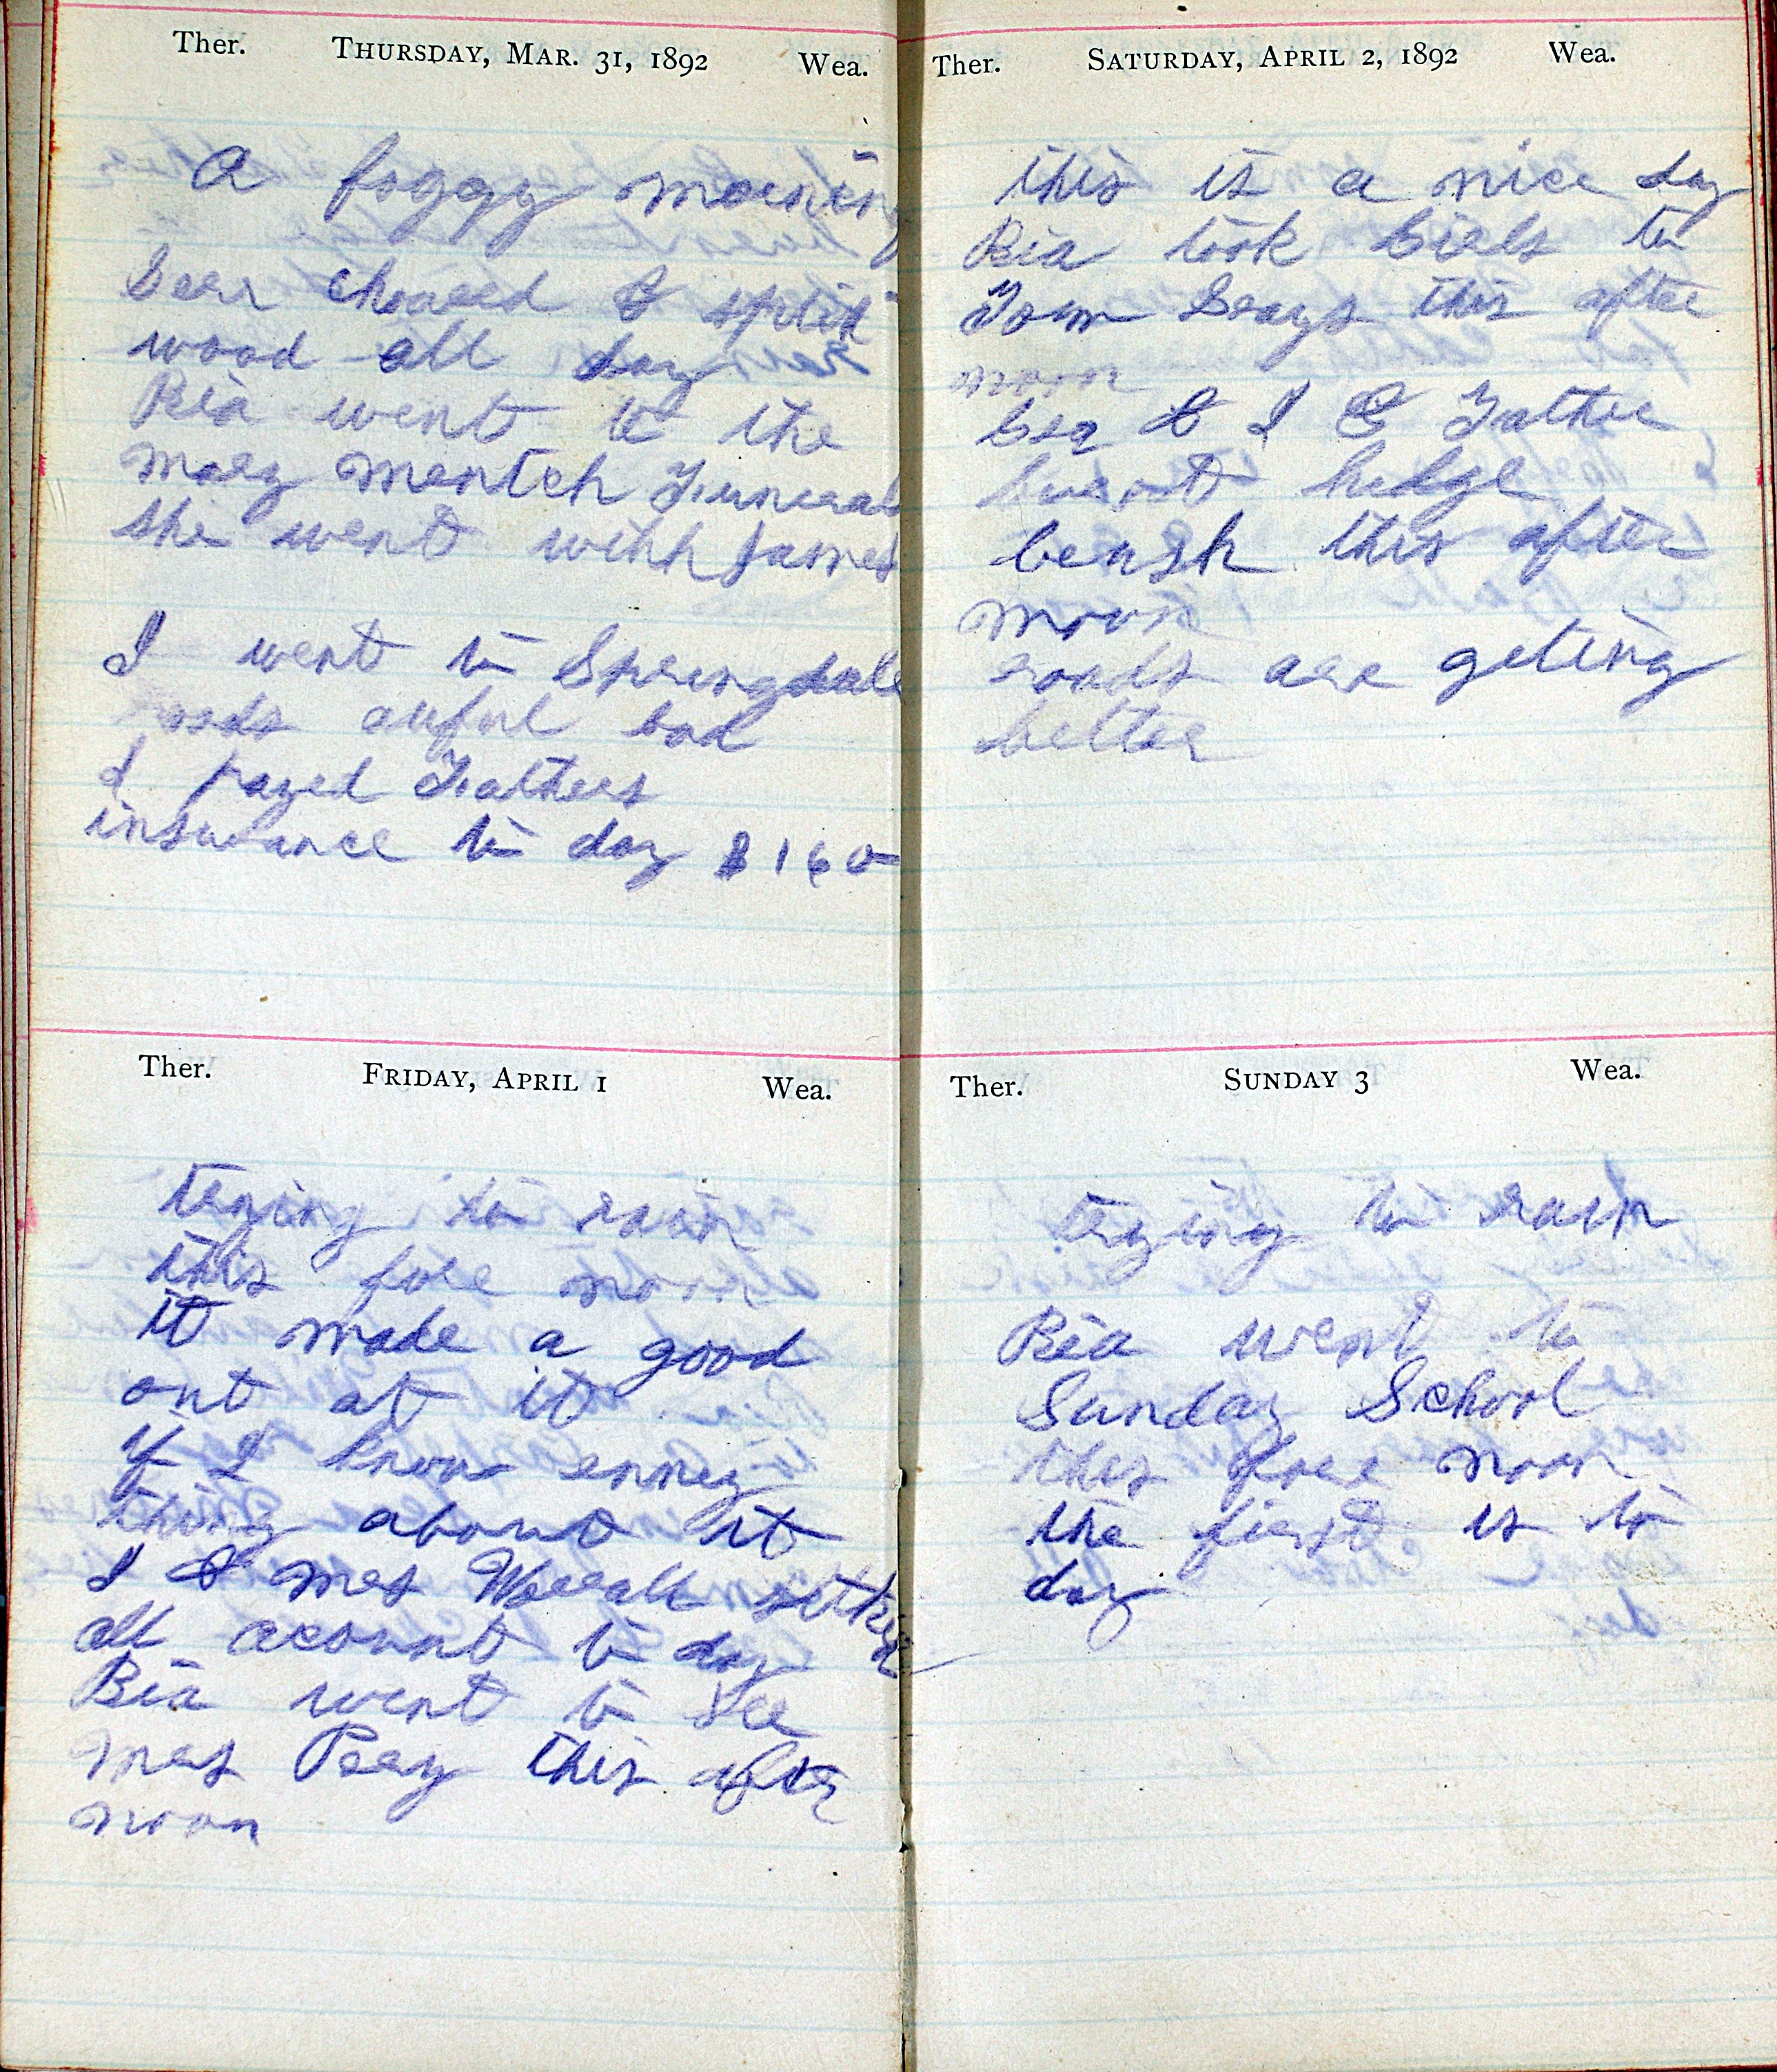 Ther. THURSDAY, MAR. 31, 1892 Wea.
A foggy morning
chored & split
wood all day
Ria went to the
mary mentch Funeral
she went with James
I went to Springdale
roads awful bad
I payed Fathers
insurance to day $160
Ther. FRIDAY, APRIL 1 Wea.
trying to rain
this fore noon
it made a good
out at it
if I know enney
thing about it
I & mrs Worrall setteled
all acount to day
Ria went to see
mrs Peay this after
noon
Ther. SATURDAY, APRIL 2, 1892 Wea.
this is a nice day
Ria took Girls to
Tom Grays this after
noon
& I & Father
burnt hedge
brush this after
noon
roads are geting
better
Ther. SUNDAY 3 Wea.
trying to rain
Ria went to
Sunday School
this fore noon
the first is to
day